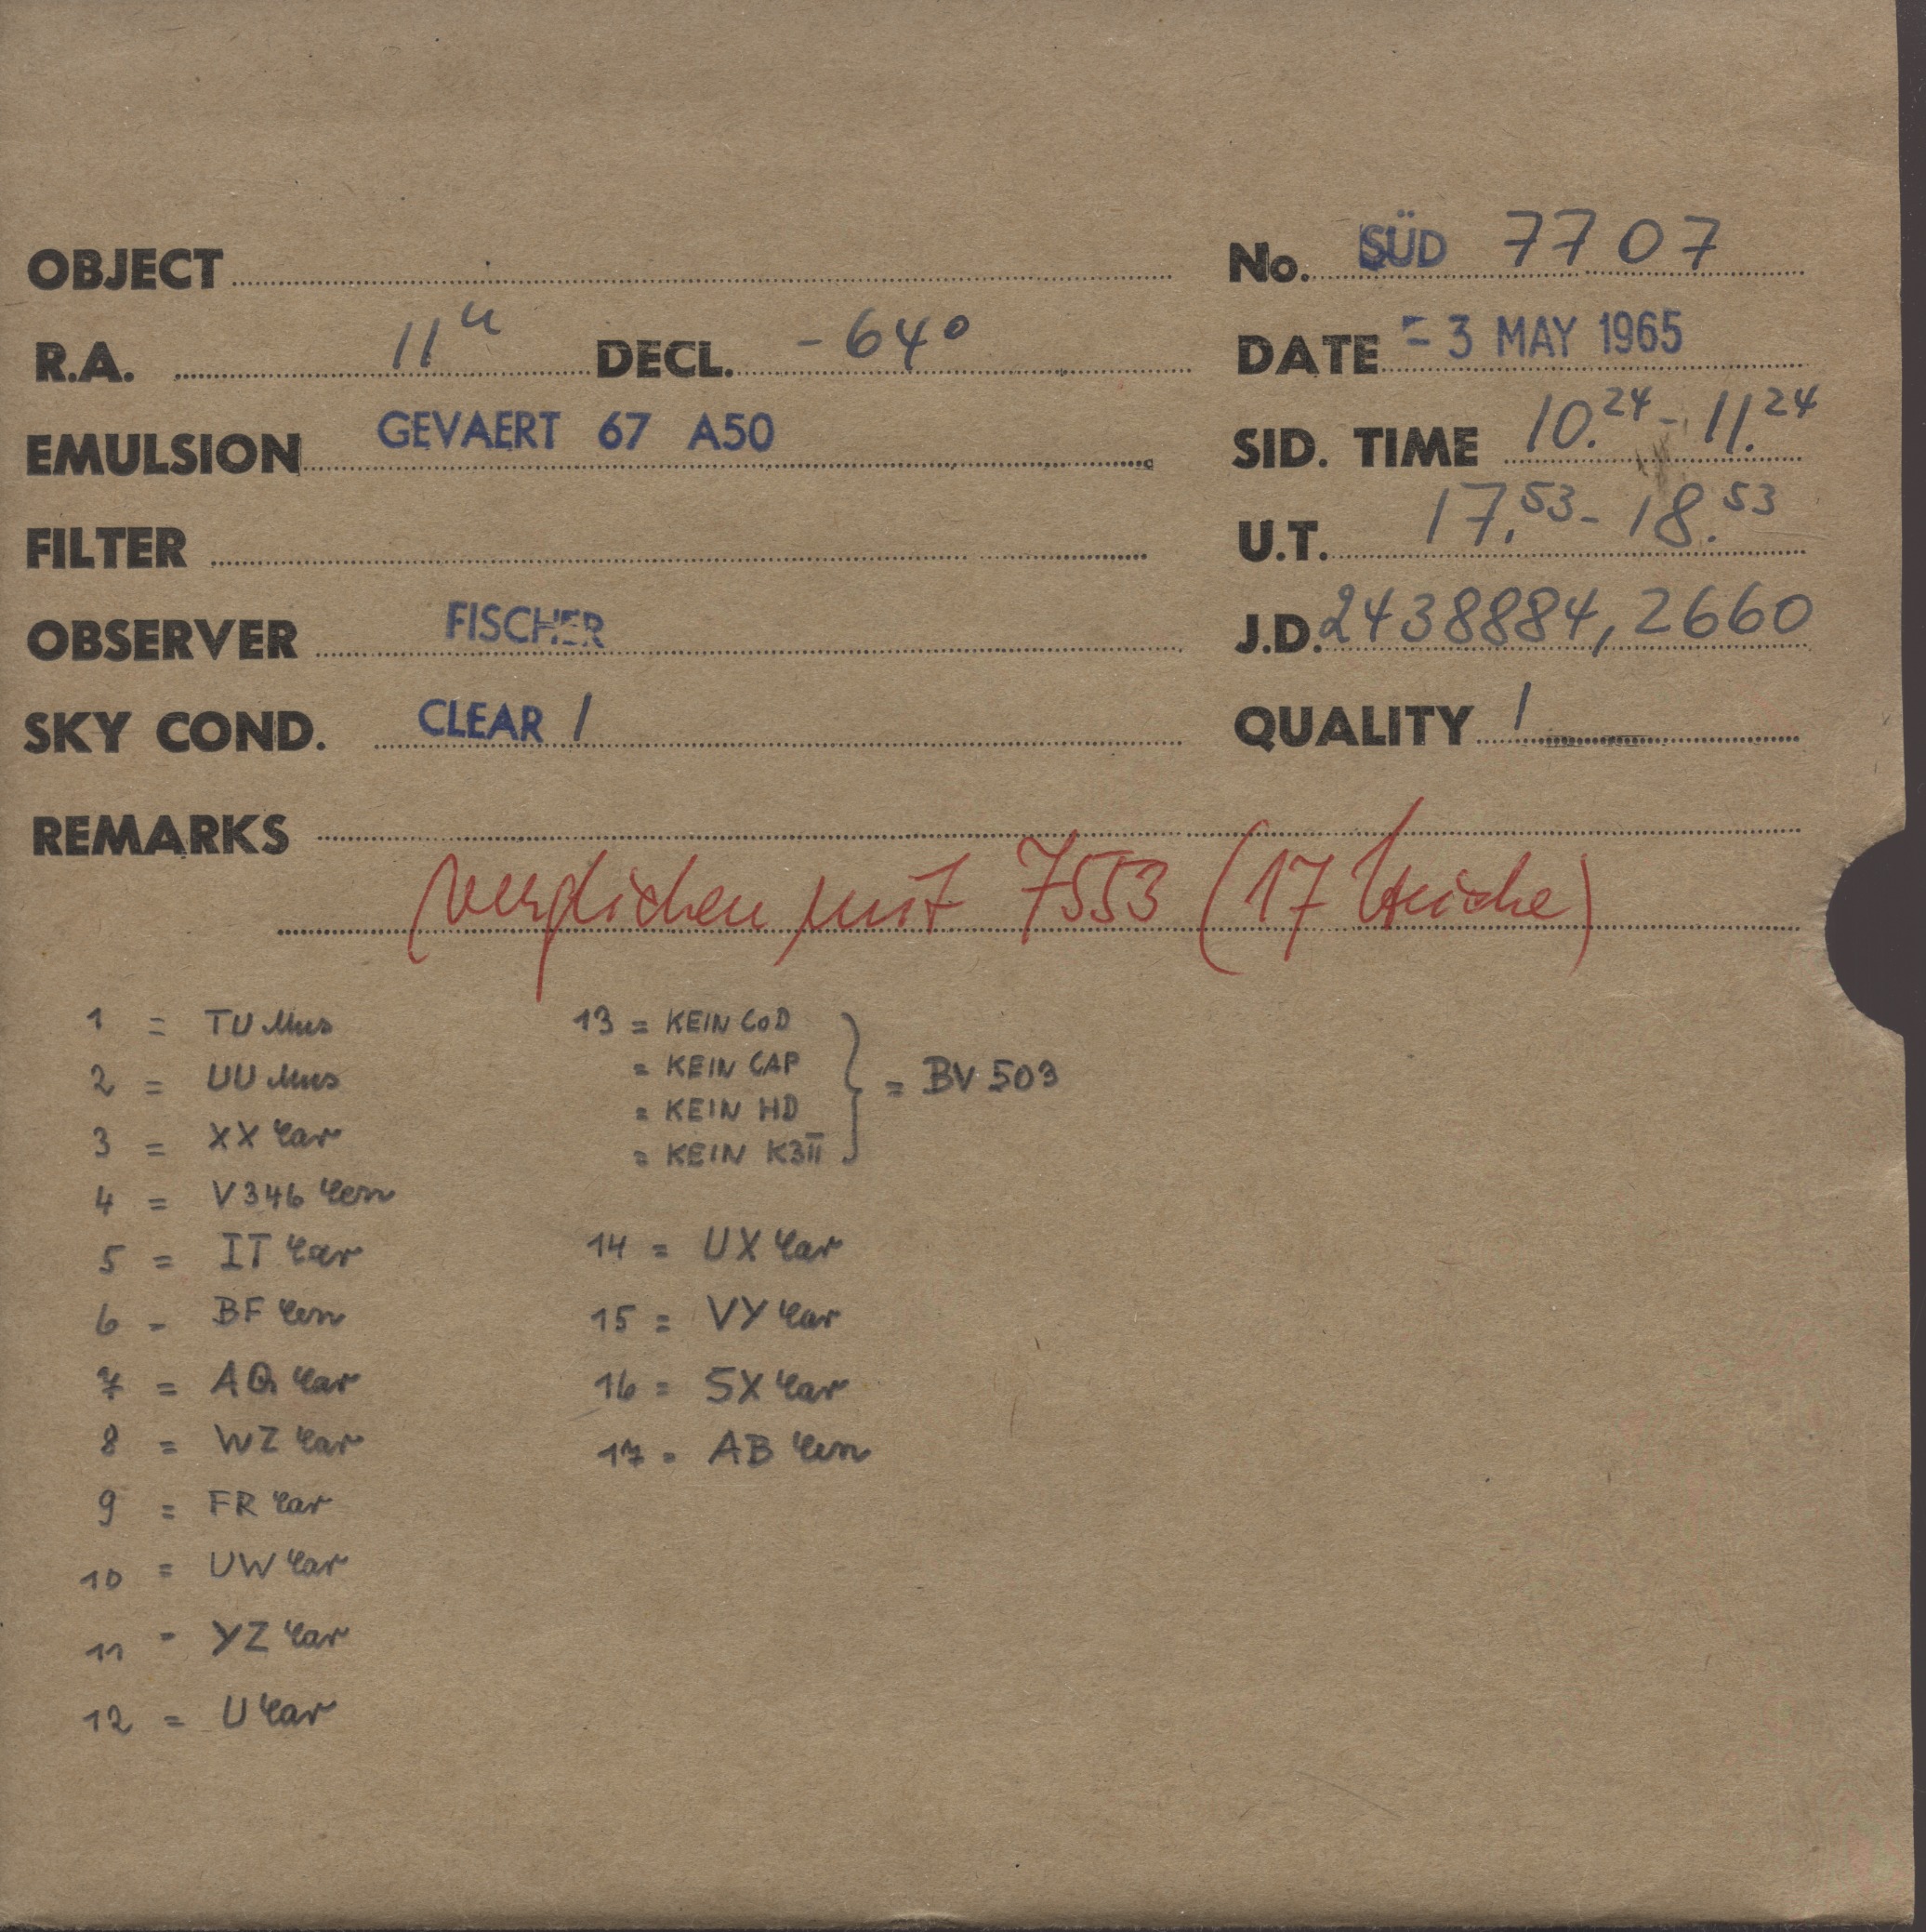 OBJECT
No. SÜD 7707
R.A. 11h DECL. -64°
DATE -3 MAY 1965
EMULSION GEVAERT 67 A50
SID. TIME 10.24 - 11.24
FILTER
U.T. 17.53 - 18.53
OBSERVER FISCHER
J.D. 2438884,2660
SKY COND. CLEAR 1
QUALITY 1
REMARKS
verglichen mit 7553 (17 Striche)
1 = TU Mus
2 = UU Mus
3 = XX Car
4 = V346 Cen
5 = IT Car
6 = BF Cen
7 = AQ Car
8 = WZ Car
9 = FR Car
10 = UW Car
11 = YZ Car
12 = U Car
13 = KEIN CoD
= KEIN CAP
= KEIN HD
= KEIN K3II
} = BV 503
14 = UX Car
15 = VY Car
16 = SX Car
17 = AB Cen